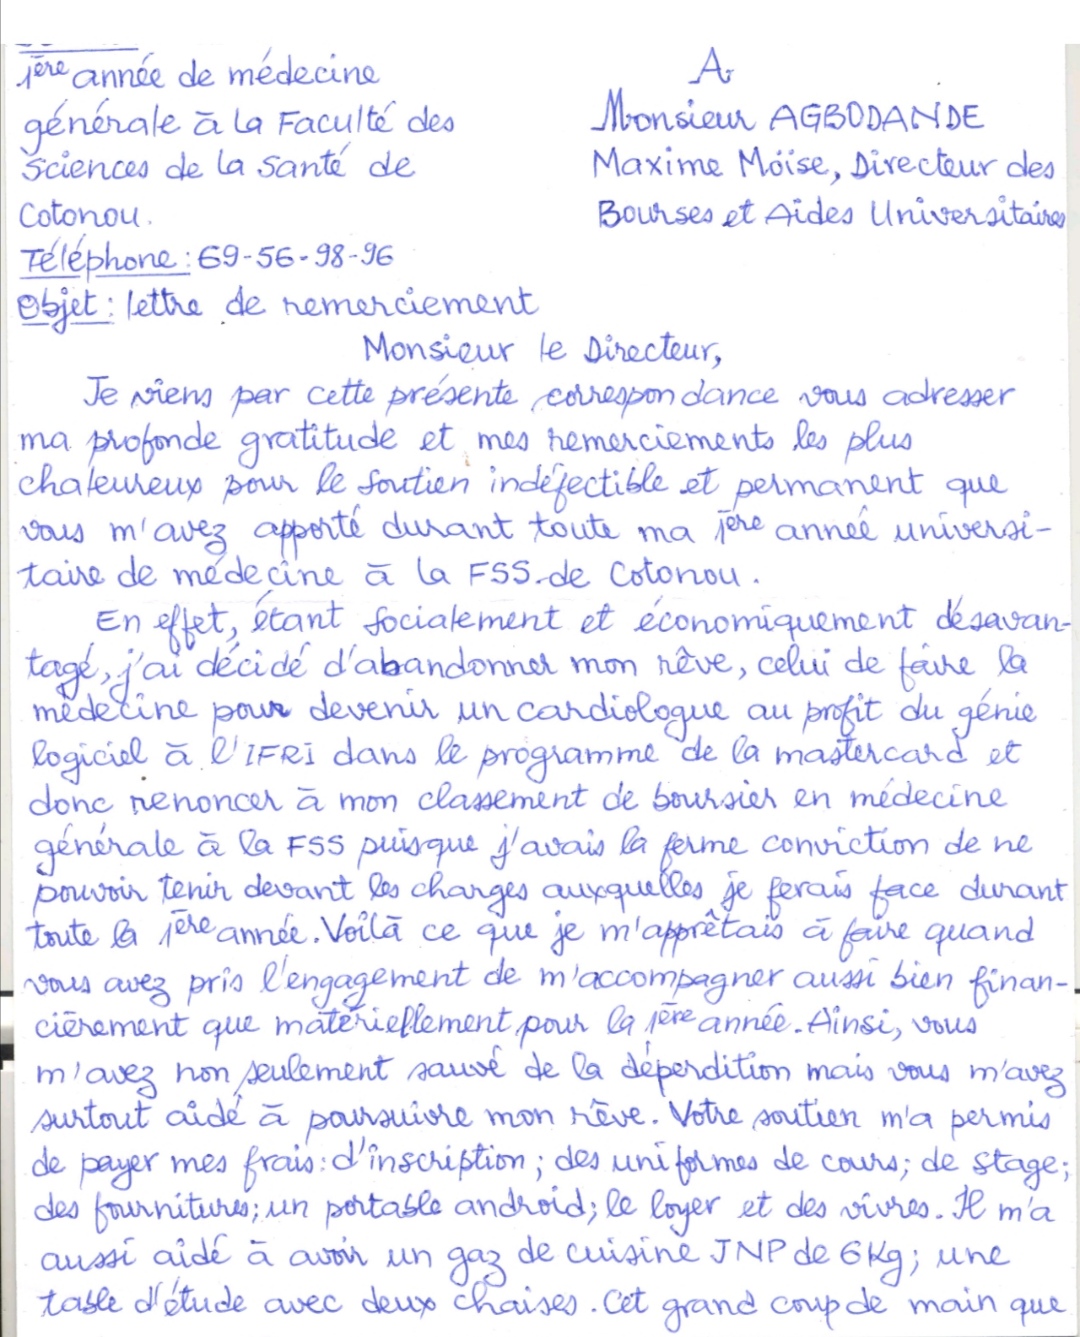 1ère année de médecine
générale à la Faculté des
Sciences de la Santé de
Cotonou.
Téléphone : 69-56-98-96
Objet : lettre de remerciement
A
Monsieur AGBODANDE
Maxime Moïse, Directeur des
Bourses et Aides Universitaires
Monsieur le Directeur,
Je viens par cette présente correspondance vous adresser
ma profonde gratitude et mes remerciements les plus
chaleureux pour le soutien indéfectible et permanent que
vous m'avez apporté durant toute ma 1ère année universi-
taire de médecine à la FSS de Cotonou.
En effet, étant socialement et économiquement désavan-
tagé, j'ai décidé d'abandonner mon rêve, celui de faire la
médecine pour devenir un cardiologue au profit du génie
logiciel à l'IFRI dans le programme de la mastercard et
donc renoncer à mon classement de boursier en médecine
générale à la FSS puisque j'avais la ferme conviction de ne
pouvoir tenir devant les charges auxquelles je ferais face durant
toute la 1ère année. Voilà ce que je m'apprêtais à faire quand
vous avez pris l'engagement de m'accompagner aussi bien finan-
cièrement que matériellement pour la 1ère année. Ainsi, vous
m'avez non seulement sauvé de la déperdition mais vous m'avez
surtout aidé à poursuivre mon rêve. Votre soutien m'a permis
de payer mes frais : d'inscription ; des uniformes de cours ; de stage ;
des fournitures ; un portable android ; le loyer et des vivres. Il m'a
aussi aidé à avoir un gaz de cuisine JNP de 6Kg ; une
table d'étude avec deux chaises. Cet grand coup de main que